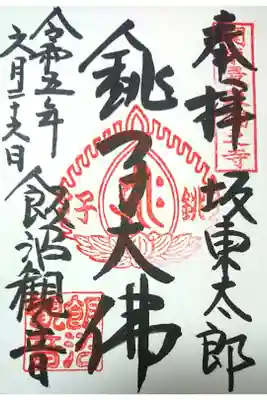 奉拝 坂東太郎
銚子大佛
銚子
令和五年六月二十六日
飯沼観音
飯沼観音